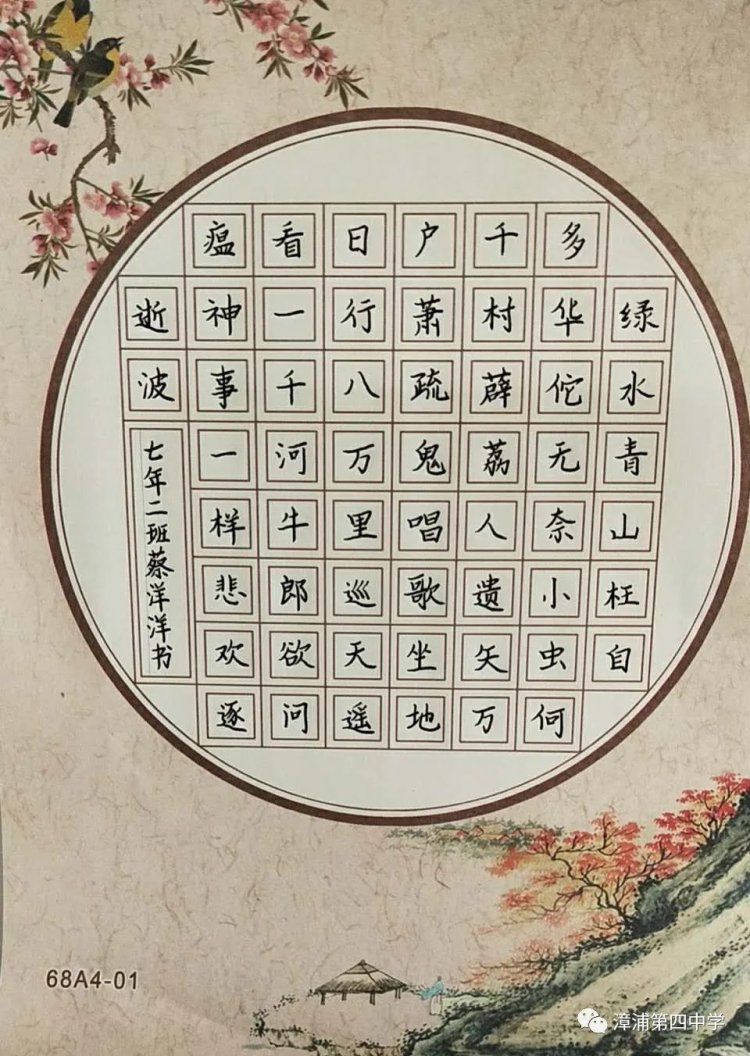 绿水青山枉自
多华佗无奈小虫何
千村薜荔人遗矢万
户萧疏鬼唱歌坐地
日行八万里巡天遥
看一千河牛郎欲问
瘟神事一样悲欢逐
逝波
七年二班蔡洋洋书
68A4-01
漳浦第四中学